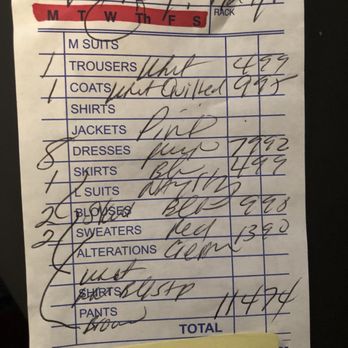 M T W Th F S RACK
M SUITS
1 TROUSERS Wht 4 99
1 COATS Wht Quilted 9 95
SHIRTS
JACKETS Pink
8 DRESSES purp 79 92
1 SKIRTS Blu 4 99
L SUITS
2 BLOUSES Blu 9 98
2 SWEATERS Red 13 90
ALTERATIONS
Wht
SHIRTS
PANTS Brown
TOTAL 114 74